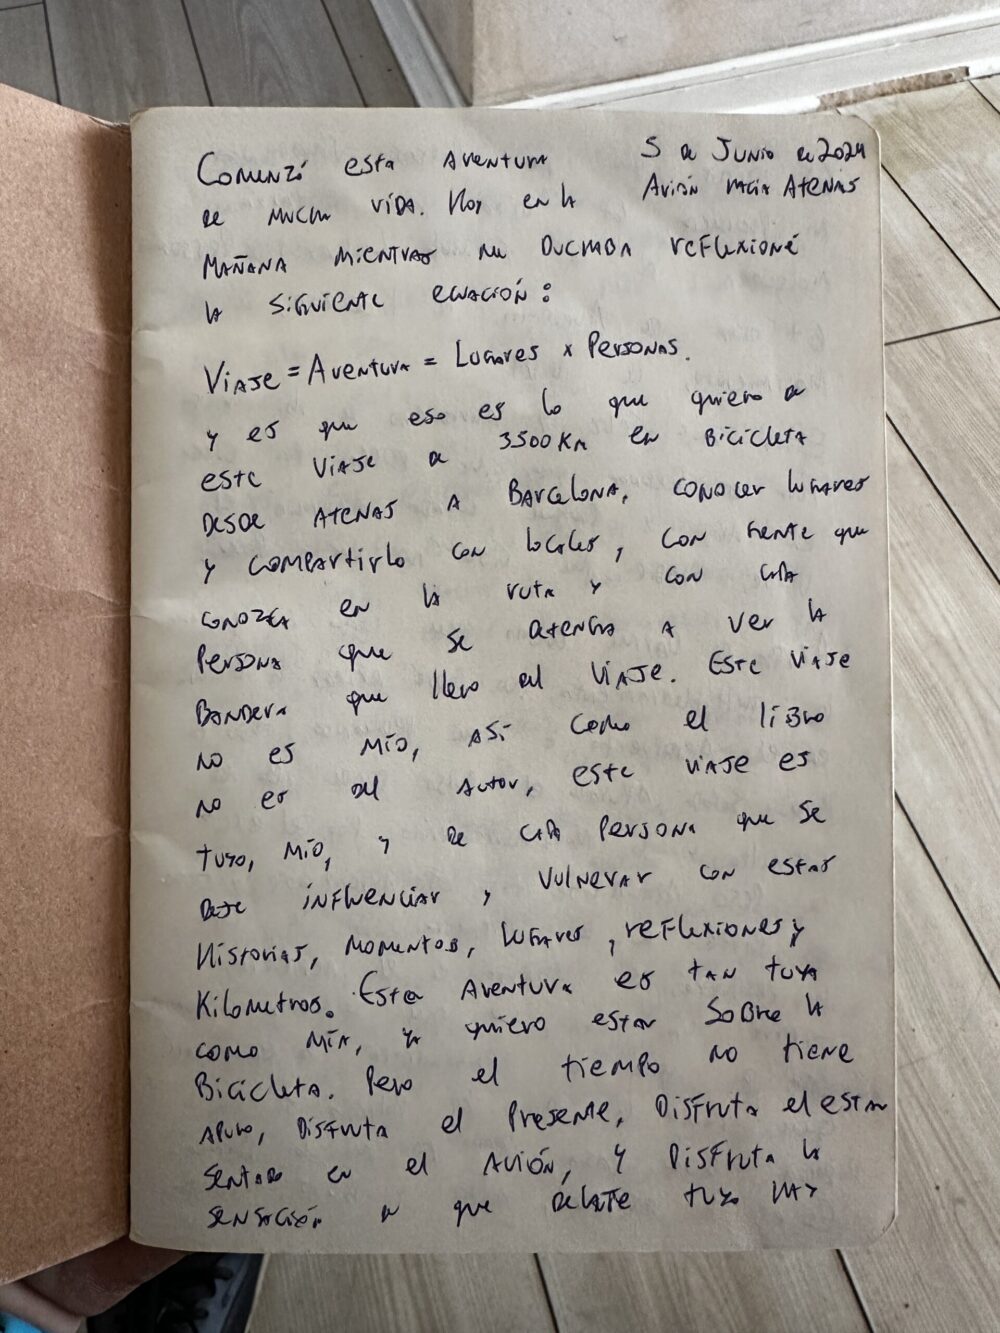 5 de Junio de 2024
Avión hacia Atenas
Comenzó esta aventura
de mucha vida. Hoy en la
mañana mientras me duchaba reflexioné
la siguiente ecuación:
Viaje = Aventura = Lugares x Personas.
y es que eso es lo que quiero de
este viaje de 3500 Km en bicicleta
desde Atenas a Barcelona, conocer lugares
y compartirlo con locales, con gente que
conozca en la ruta y con cada
persona que se detenga a ver la
bandera que llevo del viaje. Este viaje
no es mío, así como el libro
no es del autor, este viaje es
tuyo, mío, y de cada persona que se
deje influenciar y vulnerar con estas
historias, momentos, lugares, reflexiones y
kilometros. Esta aventura es tan tuya
como mía, ya quiero estar sobre la
bicicleta. Pero el tiempo no tiene
apuro, disfruta el presente, disfruta el estar
sentado en el avión, y disfruta la
sensación de que delante tuyo hay